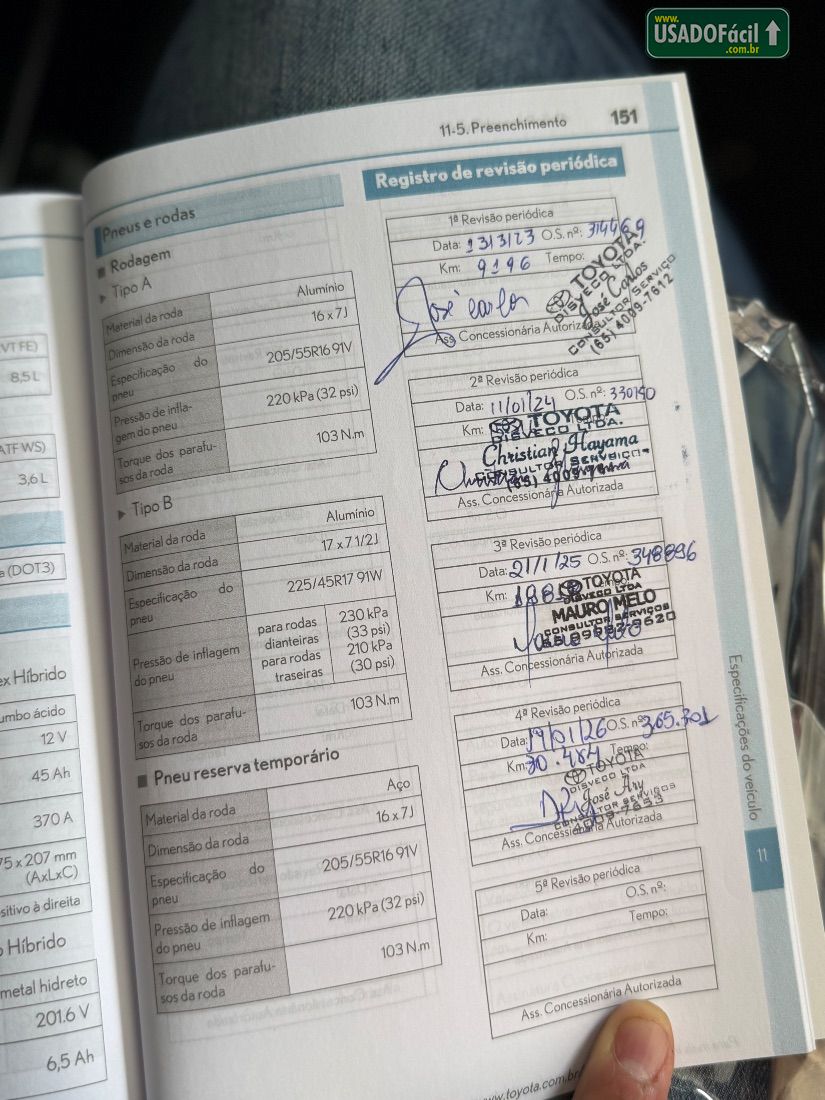 www.
USADOFácil
.com.br
VT FE)
8,5 L
ATF WS)
3,6 L
a (DOT3)
ex Híbrido
umbo ácido
12 V
45 Ah
370 A
75 x 207 mm
(AxLxC)
sitivo à direita
o Híbrido
metal hidreto
201.6 V
6,5 Ah
11-5. Preenchimento 151
Pneus e rodas
■ Rodagem
▶ Tipo A
Material da roda Alumínio
Dimensão da roda 16 x 7J
Especificação do pneu 205/55R16 91V
Pressão de inflagem do pneu 220 kPa (32 psi)
Torque dos parafusos da roda 103 N.m
▶ Tipo B
Material da roda Alumínio
Dimensão da roda 17 x 7 1/2J
Especificação do pneu 225/45R17 91W
Pressão de inflagem do pneu
para rodas dianteiras 230 kPa (33 psi)
para rodas traseiras 210 kPa (30 psi)
Torque dos parafusos da roda 103 N.m
■ Pneu reserva temporário
Material da roda Aço
Dimensão da roda 16 x 7J
Especificação do pneu 205/55R16 91V
Pressão de inflagem do pneu 220 kPa (32 psi)
Torque dos parafusos da roda 103 N.m
Registro de revisão periódica
1ª Revisão periódica
Data: 13/3/23 O.S. nº: 314469
Km: 9196 Tempo:
José Carlos
TOYOTA
DISVECO LTDA.
José Carlos
CONSULTOR/SERVIÇO
(65) 4009-7612
Ass. Concessionária Autorizada
2ª Revisão periódica
Data: 11/01/24 O.S. nº: 330140
Km:
TOYOTA
DISVECO LTDA.
Christian Hayama
CONSULTOR SERVIÇOS
Ass. Concessionária Autorizada
3ª Revisão periódica
Data: 21/1/25 O.S. nº: 348896
Km:
TOYOTA
DISVECO LTDA
MAURO MELO
CONSULTOR SERVIÇOS
Ass. Concessionária Autorizada
4ª Revisão periódica
Data: 19/01/26 O.S. nº: 365.301
Km: 30.484 Tempo:
TOYOTA
DISVECO LTDA
José Ary
CONSULTOR SERVIÇOS
4009-7653
Ass. Concessionária Autorizada
5ª Revisão periódica
Data: O.S. nº:
Km: Tempo:
Ass. Concessionária Autorizada
Especificações do veículo
11
www.toyota.com.br